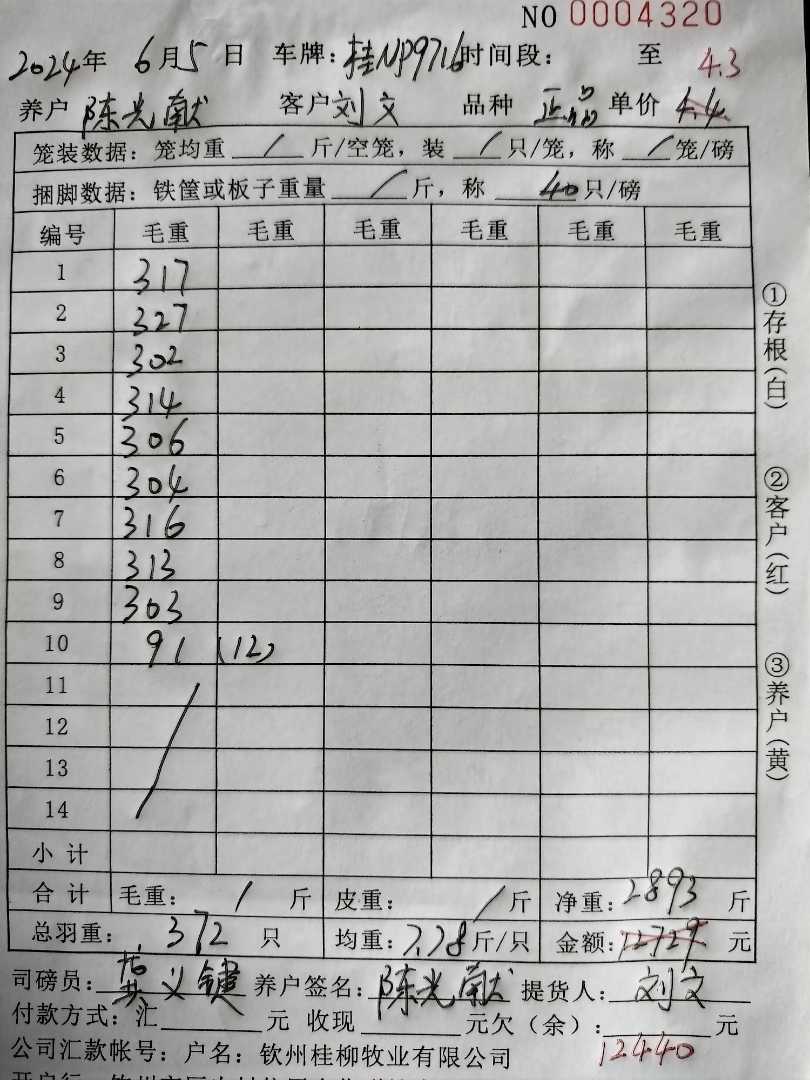 NO 0004320
2024年 6月5日 车牌:桂NP9716时间段: 至 4.3
养户 陈光献 客户 刘文 品种 正品 单价 4.4
笼装数据:笼均重 / 斤/空笼,装 / 只/笼,称 / 笼/磅
捆脚数据:铁筐或板子重量 / 斤,称 40 只/磅
编号 毛重 毛重 毛重 毛重 毛重 毛重
1 317
2 327
3 302
4 314
5 306
6 304
7 316
8 313
9 303
10 91 (12)
11
12
13
14
小计
合计 毛重: / 斤 皮重: / 斤 净重:2893 斤
总羽重: 372 只 均重:7.78斤/只 金额:12729 元
司磅员: 黄义键 养户签名: 陈光献 提货人: 刘文
付款方式:汇 元 收现 元欠(余): 元
12440
公司汇款帐号:户名:钦州桂柳牧业有限公司
①存根(白)
②客户(红)
③养户(黄)